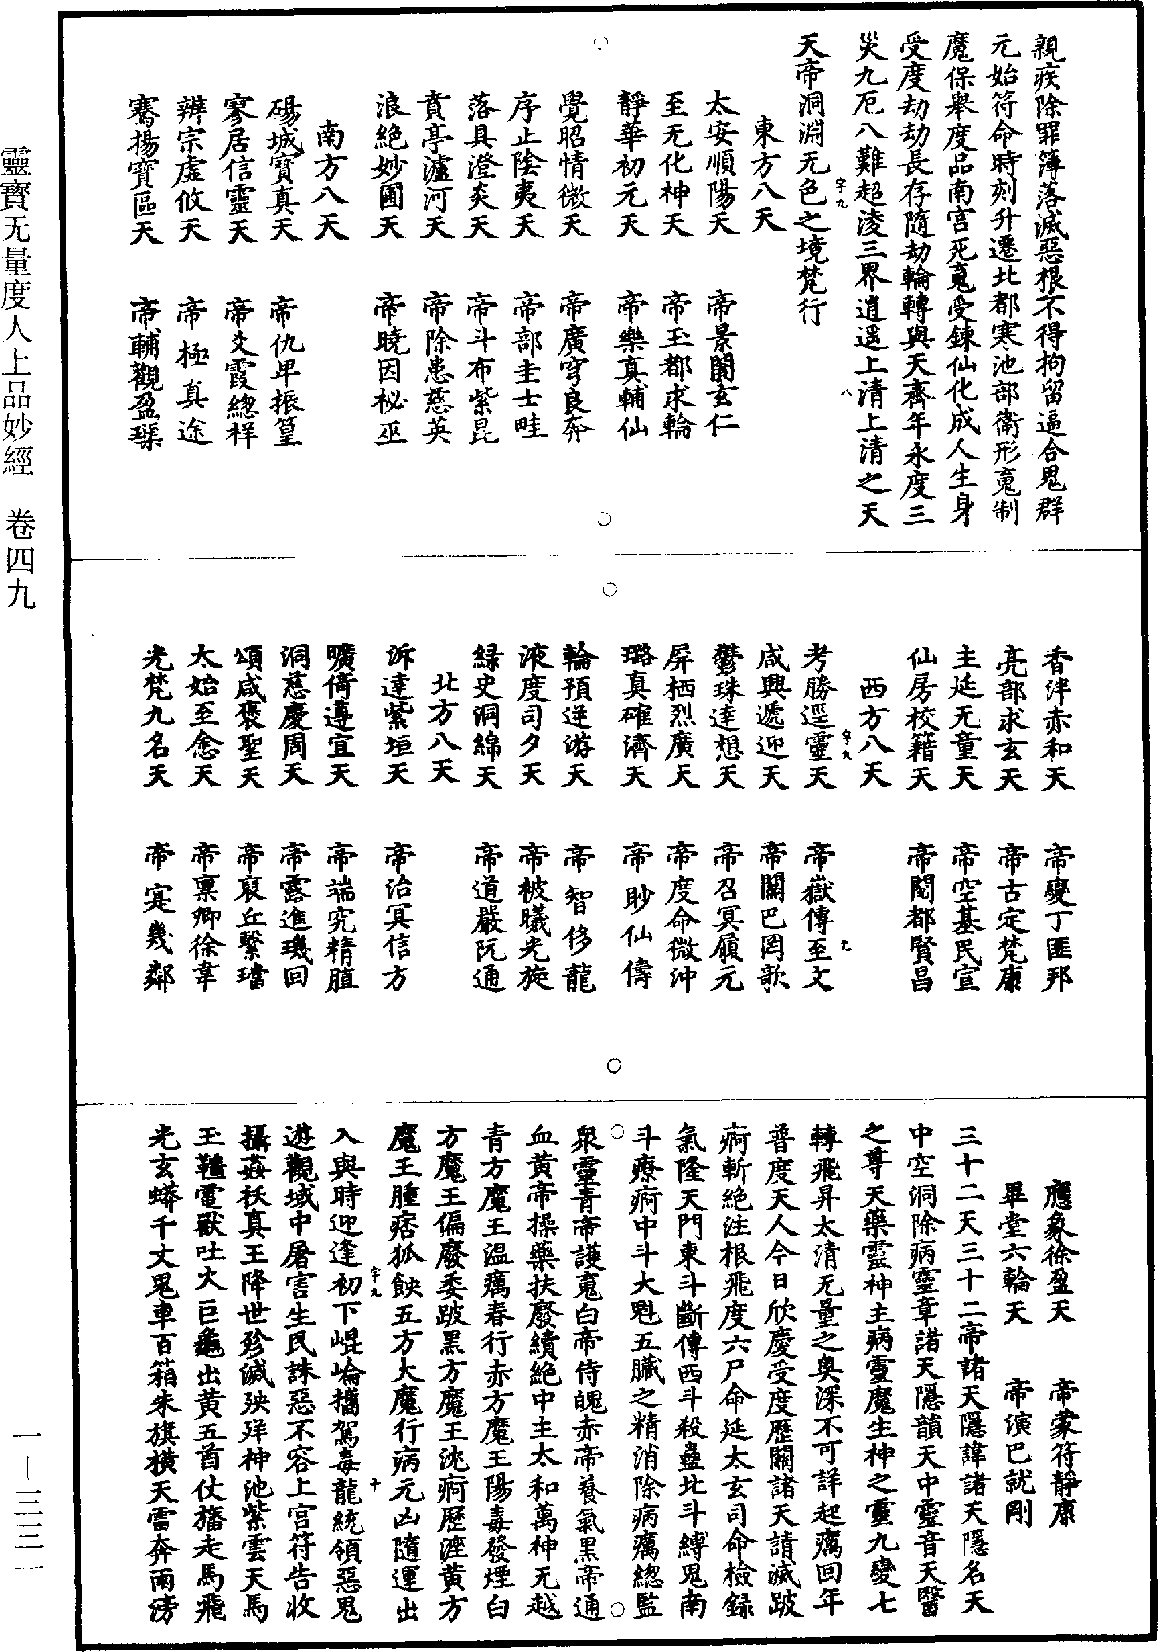 親疾除罪簿落滅惡根不得拘留逼合鬼群
元始符命時刻升遷北都寒池部衛形䰟制
魔保舉度品南宮死䰟受鍊仙化成人生身
受度劫劫長存隨劫輪轉與天齊年永度三
災九厄八難超淩三界逍遥上清上清之天
天帝洞淵无色之境梵行
東方八天
太安順陽天 帝景闌玄仁
至无化神天 帝玉都求輪
靜華初元天 帝樂真輔仙
覺昭情微天 帝廣穹良奔
序止陰夷天 帝部圭士畦
落具澄炎天 帝斗布紫昆
賁亭瀘河天 帝除患慈英
浪絶妙圃天 帝曉因祕巫
南方八天
碭城寶真天 帝仇卑振篁
寥居信靈天 帝爻霞總祥
辨宗虛攸天 帝極真途
騫揚寶區天 帝輔觀盈琛
香泮赤和天 帝變丁匪邦
亮部求玄天 帝古定梵康
主延无童天 帝空基民宣
仙房校籍天 帝閻都賢昌
西方八天
考勝逕靈天 帝嶽傳至文
咸興遞迎天 帝關巴罔歌
鬱珠達想天 帝召冥履元
屏栖烈廣天 帝度命微沖
璐真確濟天 帝眇仙儔
輪預逆游天 帝智修龍
液度司夕天 帝被曦光旋
緑史洞綿天 帝道嚴阮通
北方八天
泝達紫垣天 帝治冥信方
曠脩遵宜天 帝端究精脜
洞慈慶周天 帝露進璣回
頌咸褒聖天 帝裒丘繫璿
太始至愈天 帝稟卿徐韋
光梵九名天 帝寔幾鄰
應象徐盈天 帝蒙符靜康
畢堂六輪天 帝演巴就剛
三十二天三十二帝諸天隱諱諸天隱名天
中空洞除病靈章諸天隱韻天中靈音天醫
之尊天藥靈神主病靈魔生神之靈九變七
轉飛昇太清无量之奥深不可詳起癘回年
普度天人今日欣慶受度歷關諸天請滅跛
痾斬絶注根飛度六尸命延太玄司命檢録
氣隆天門東斗斷傳西斗殺蠱北斗縛鬼南
斗療痾中斗大魁五臟之精消除病癘總監
衆靈青帝護䰟白帝侍魄赤帝養氣黑帝通
血黄帝操藥扶廢續絶中主太和萬神无越
青方魔王温癘春行赤方魔王陽毒發煙白
方魔王偏廢委跛黑方魔王沈痾歷湮黄方
魔王腫痞狐䬣五方大魔行病元凶隨運出
入與時迎逢初下崐崘攜駕毒龍統領惡鬼
遊觀域中屠害生民誅惡不容上宮符告收
攝姦袄真王降世殄滅殃殍神池紫雲天馬
王䪊電獸吐火巨龜出黄五首仗旛走馬飛
光玄蟒千丈鬼車百箱朱旗橫天雷奔雨滂
字九
八
字九
九
字九
十
靈寶无量度人上品妙經 卷四九
一—三三一